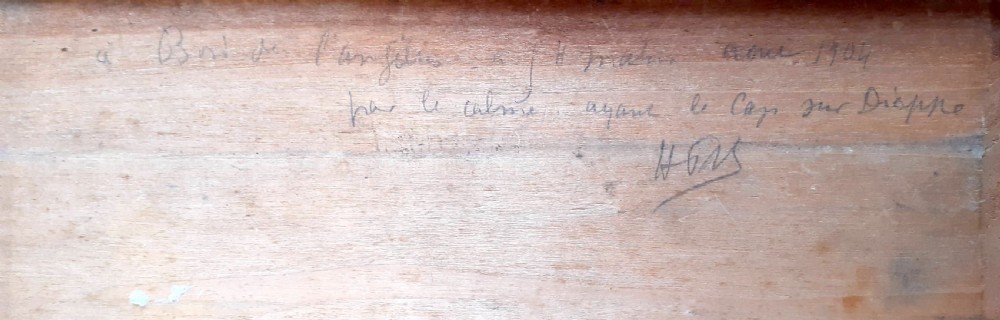 a Bord de l'angélus 5 h matin aout 1904
par le calme ayant le Cap sur Dieppe